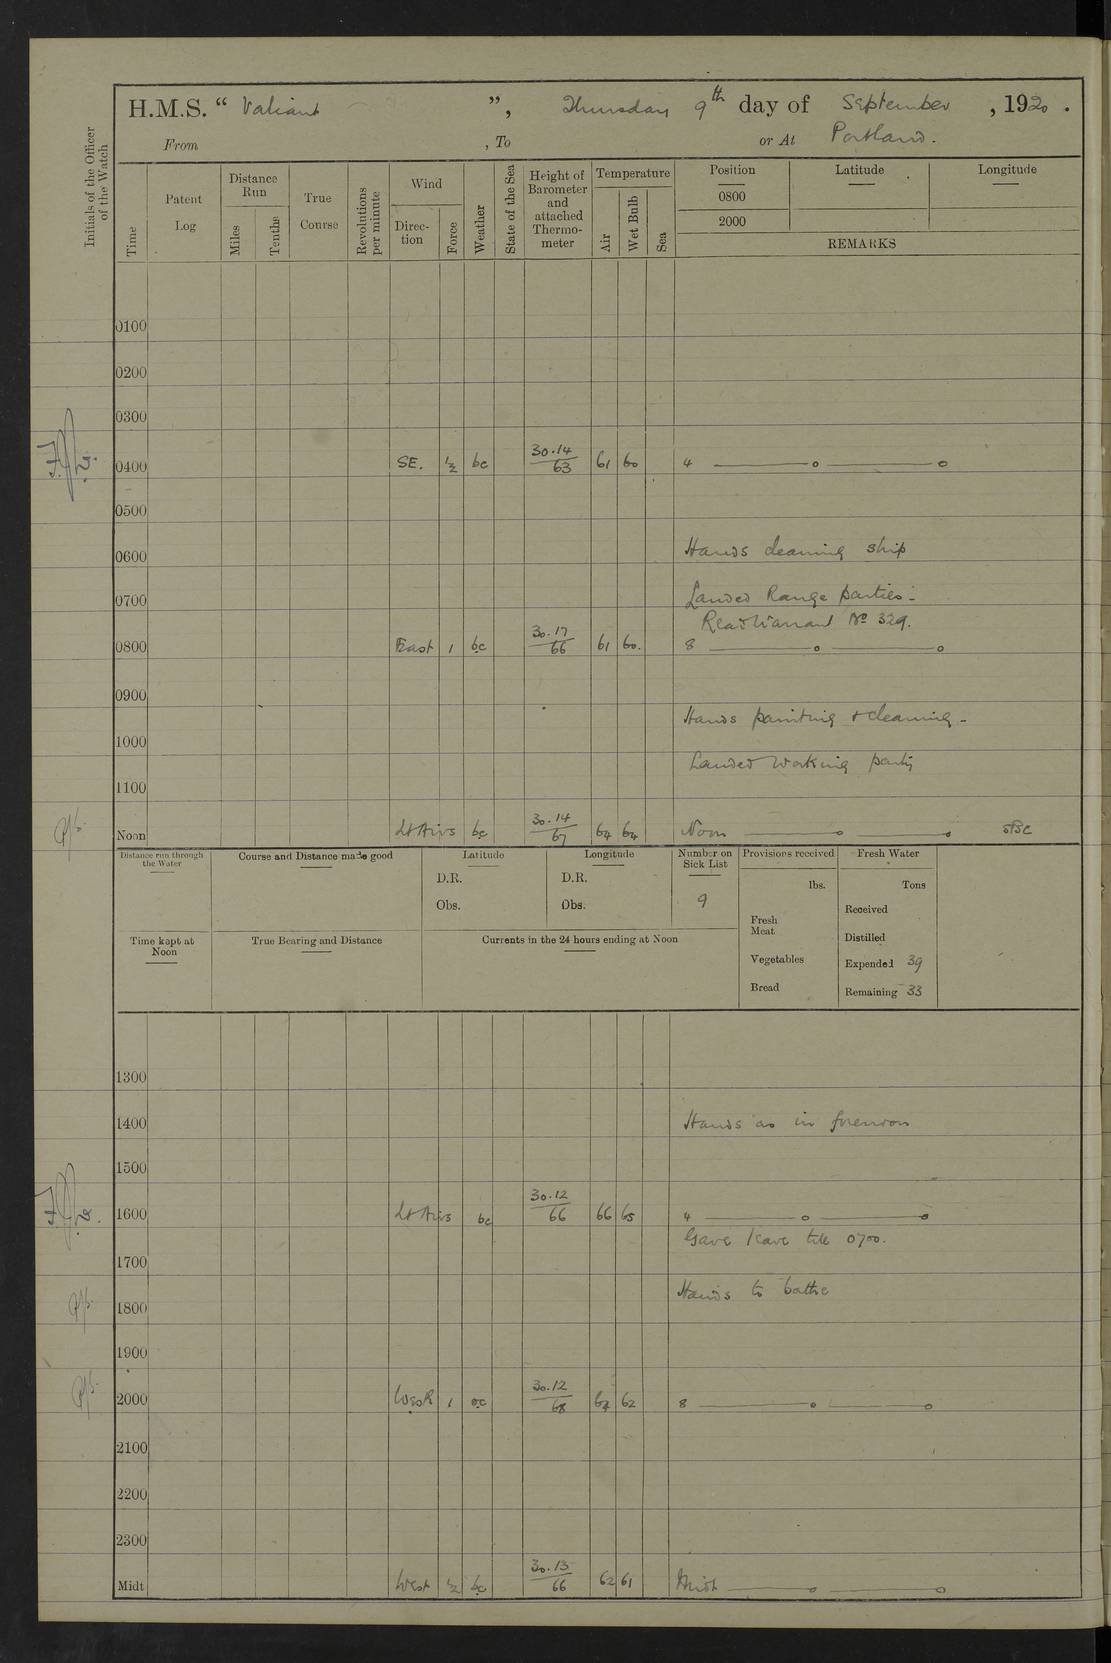 H.M.S. “ Valiant ”, Thursday 9th day of September, 1920.
From , To or At Portland.
Initials of the Officer of the Watch
Time
Patent Log
Distance Run
Miles
Tenths
True Course
Revolutions per minute
Wind
Direction
Force
Weather
State of the Sea
Height of Barometer and attached Thermometer
Temperature
Air
Wet Bulb
Sea
Position
Latitude
Longitude
0800
2000
REMARKS
0100
0200
0300
0400 SE. ½ bc 30.14/63 61 60 4
0500
0600 Hands cleaning ship
0700 Landed Range parties.
Read Warrant No 329.
0800 East 1 bc 30.17/66 61 60. 8
0900
Hands painting + cleaning -
1000
Landed working party
1100
Noon Lt Airs bc 30.14/67 64 64 Noon
Distance run through the Water
Course and Distance made good
Latitude
D.R.
Obs.
Longitude
D.R.
Obs.
Number on Sick List
9
Provisions received
lbs.
Fresh Meat
Vegetables
Bread
Fresh Water
Tons
Received
Distilled
Expended 39
Remaining 33
Time kept at Noon
True Bearing and Distance
Currents in the 24 hours ending at Noon
1300
1400 Hands as in forenoon
1500
1600 Lt Airs bc 30.12/66 66 65 4
Gave leave till 0700.
1700
Hands to bathe
1800
1900
2000 1 30.12/68 62 8
2100
2200
2300
Midt West ½ bc 30.13/66 62 61 Midt